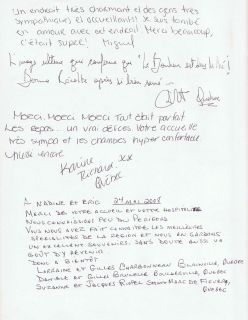 Un endroit très charmant et des gens très
sympathiques et accueillants! Je suis tombé
en amour avec cet endroit. Merci beaucoup,
c'était super! Miguel
"Le Bonheur est dans le Pré"!
Bonne
après
Québec
Merci, Merci Merci Tout était parfait
Les repas... un vrai délices. Votre accueille
très sympa et les chambres hyper confortable
encore
Karine xx
Richard
Québec
A Nadine et Eric 24 mai 2008
Merci de votre accueil et votre hospitalité
Nous connaissions peu du Périgord
Vous nous avez fait connaître les meilleures
spécialités de la région et nous en gardons
un excellent souvenir. Sans doute aussi un
goût d'y revenir
Donc à bientôt
Lorraine et Gilles Charbonneau Blainville, Québec
et Gilles Boucherville, Québec
Suzanne et Jacques Saint-Marc
Québec